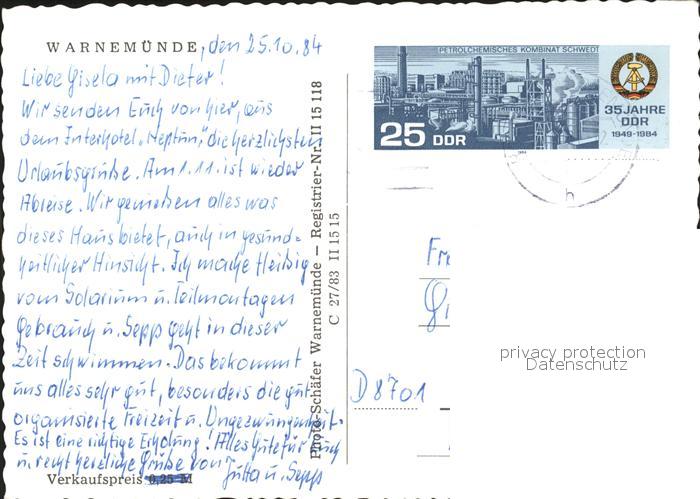 WARNEMÜNDE, den 25.10.84
Liebe Gisela mit Dieter!
Wir senden Euch von hier, aus
dem Interhotel „Neptun", die herzlichsten
Urlaubsgrüße. Am 1.11. ist wieder
Abreise. Wir genießen alles was
dieses Haus bietet, auch in gesund=
heitlicher Hinsicht. Ich mache fleißig
vom Solarium u. Teilmassagen
Gebrauch u. Sepp geht in dieser
Zeit schwimmen. Das bekommt
uns alles sehr gut, besonders die gut
organisierte Freizeit u. Ungezwungenheit.
Es ist eine richtige Erholung! Alles Gute für Euch
u. recht herzliche Grüße von
Jutta u. Sepp
Verkaufspreis 0,25 M
Photo-Schäfer Warnemünde — Registrier-Nr. II 15 118
C 27/83 II 15 15
PETROLCHEMISCHES KOMBINAT SCHWEDT
25 DDR
35 JAHRE
DDR
1949-1984
h
Fr
Gi
D 8701
privacy protection
Datenschutz